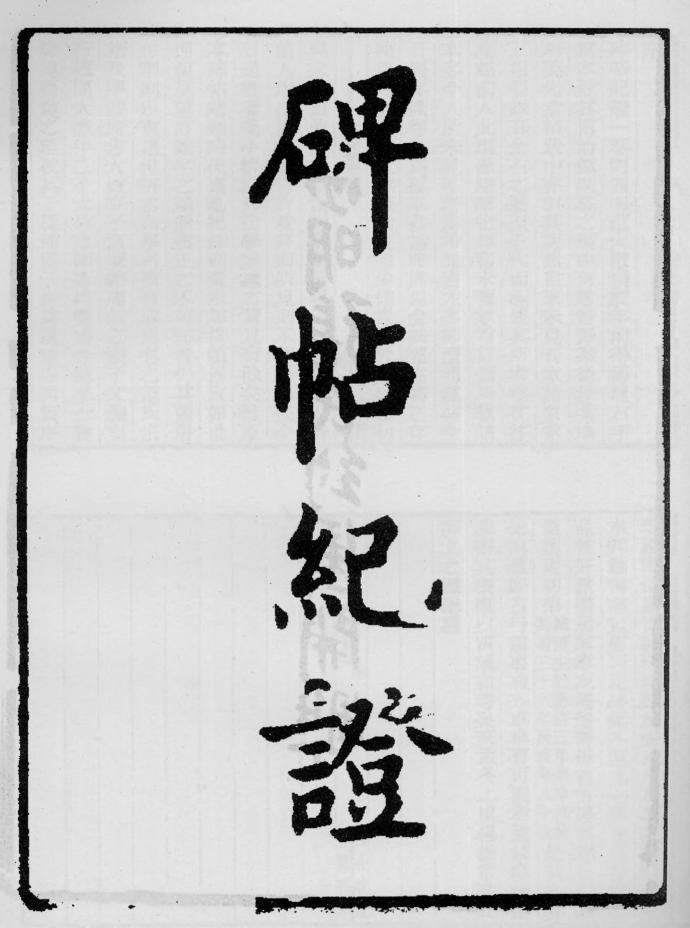 碑帖紀證